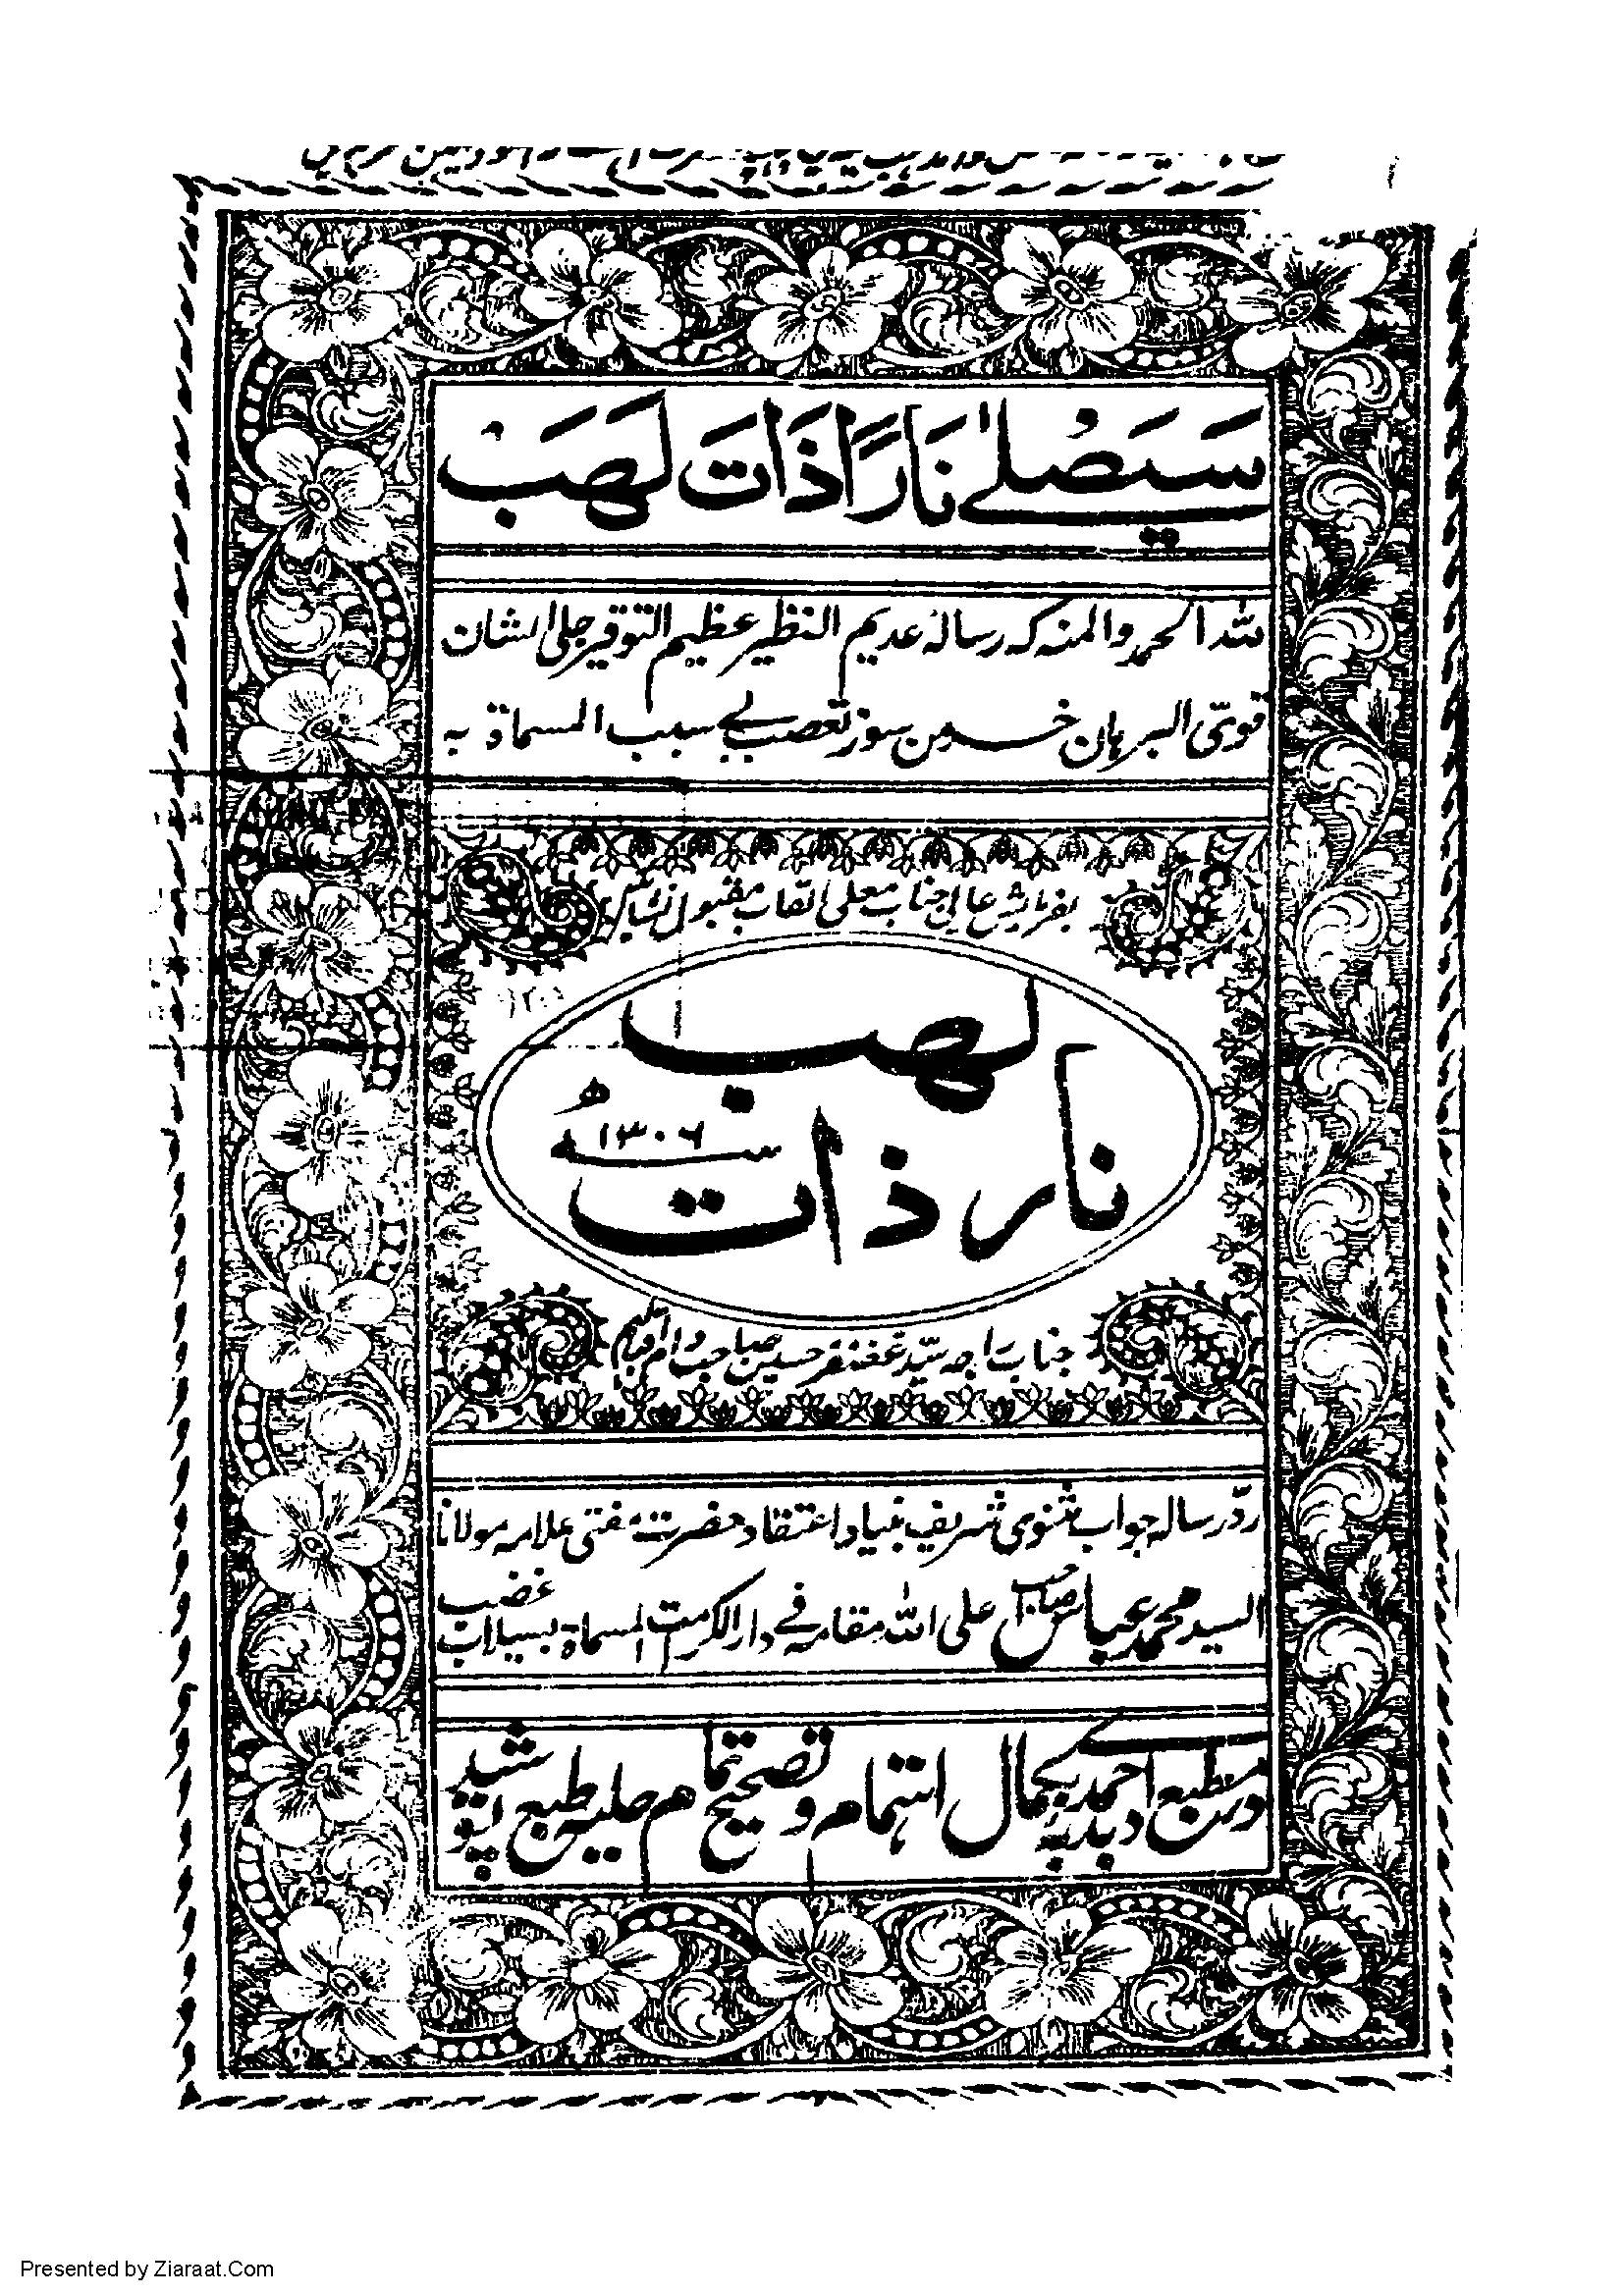 سَيَصْلٰے نَارًا ذَاتَ لَهَبْ
للہ الحمد والمنہ کہ رسالہ عدیم النظیر عظیم التوقیر جلی الشان
قویّ البرہان خرمن سوز تعصب بے سبب المسماۃ بہ
بفرمایش عالی جناب معلی القاب مقبول
نار ذات لہب
سنہ ۱۳۰۶ ھ
جناب راجہ سیّد غضنفر حسین صاحب دام اقبالہم
ردّ رسالہ جواب مثنوی شریف بنیاد اعتقاد حضرت مفتی علامہ مولانا
السید محمد عباس صاحب اعلی اللہ مقامہ فے دار الکرامت المسماۃ بسیلاب غضب
در مطبع دبدبہ احمدے بکمال اہتمام و تصحیح تمام حلیہ طبع پوشید
Presented by Ziaraat.Com